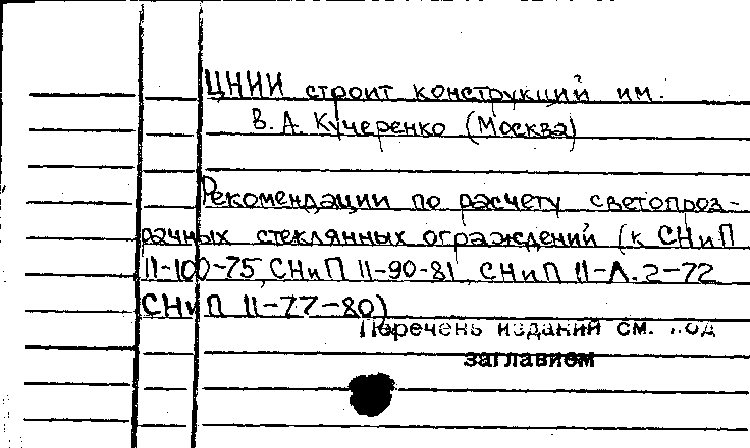 ЦНИИ строит конструкций им.
В. А. Кучеренко (Москва)
Рекомендации по расчету светопроз-
рачных стеклянных ограждений (к СНиП
II-100-75, СНиП II-90-81, СНиП II-Л.2-72
СНиП II-77-80)
Перечень изданий см. под
заглавием